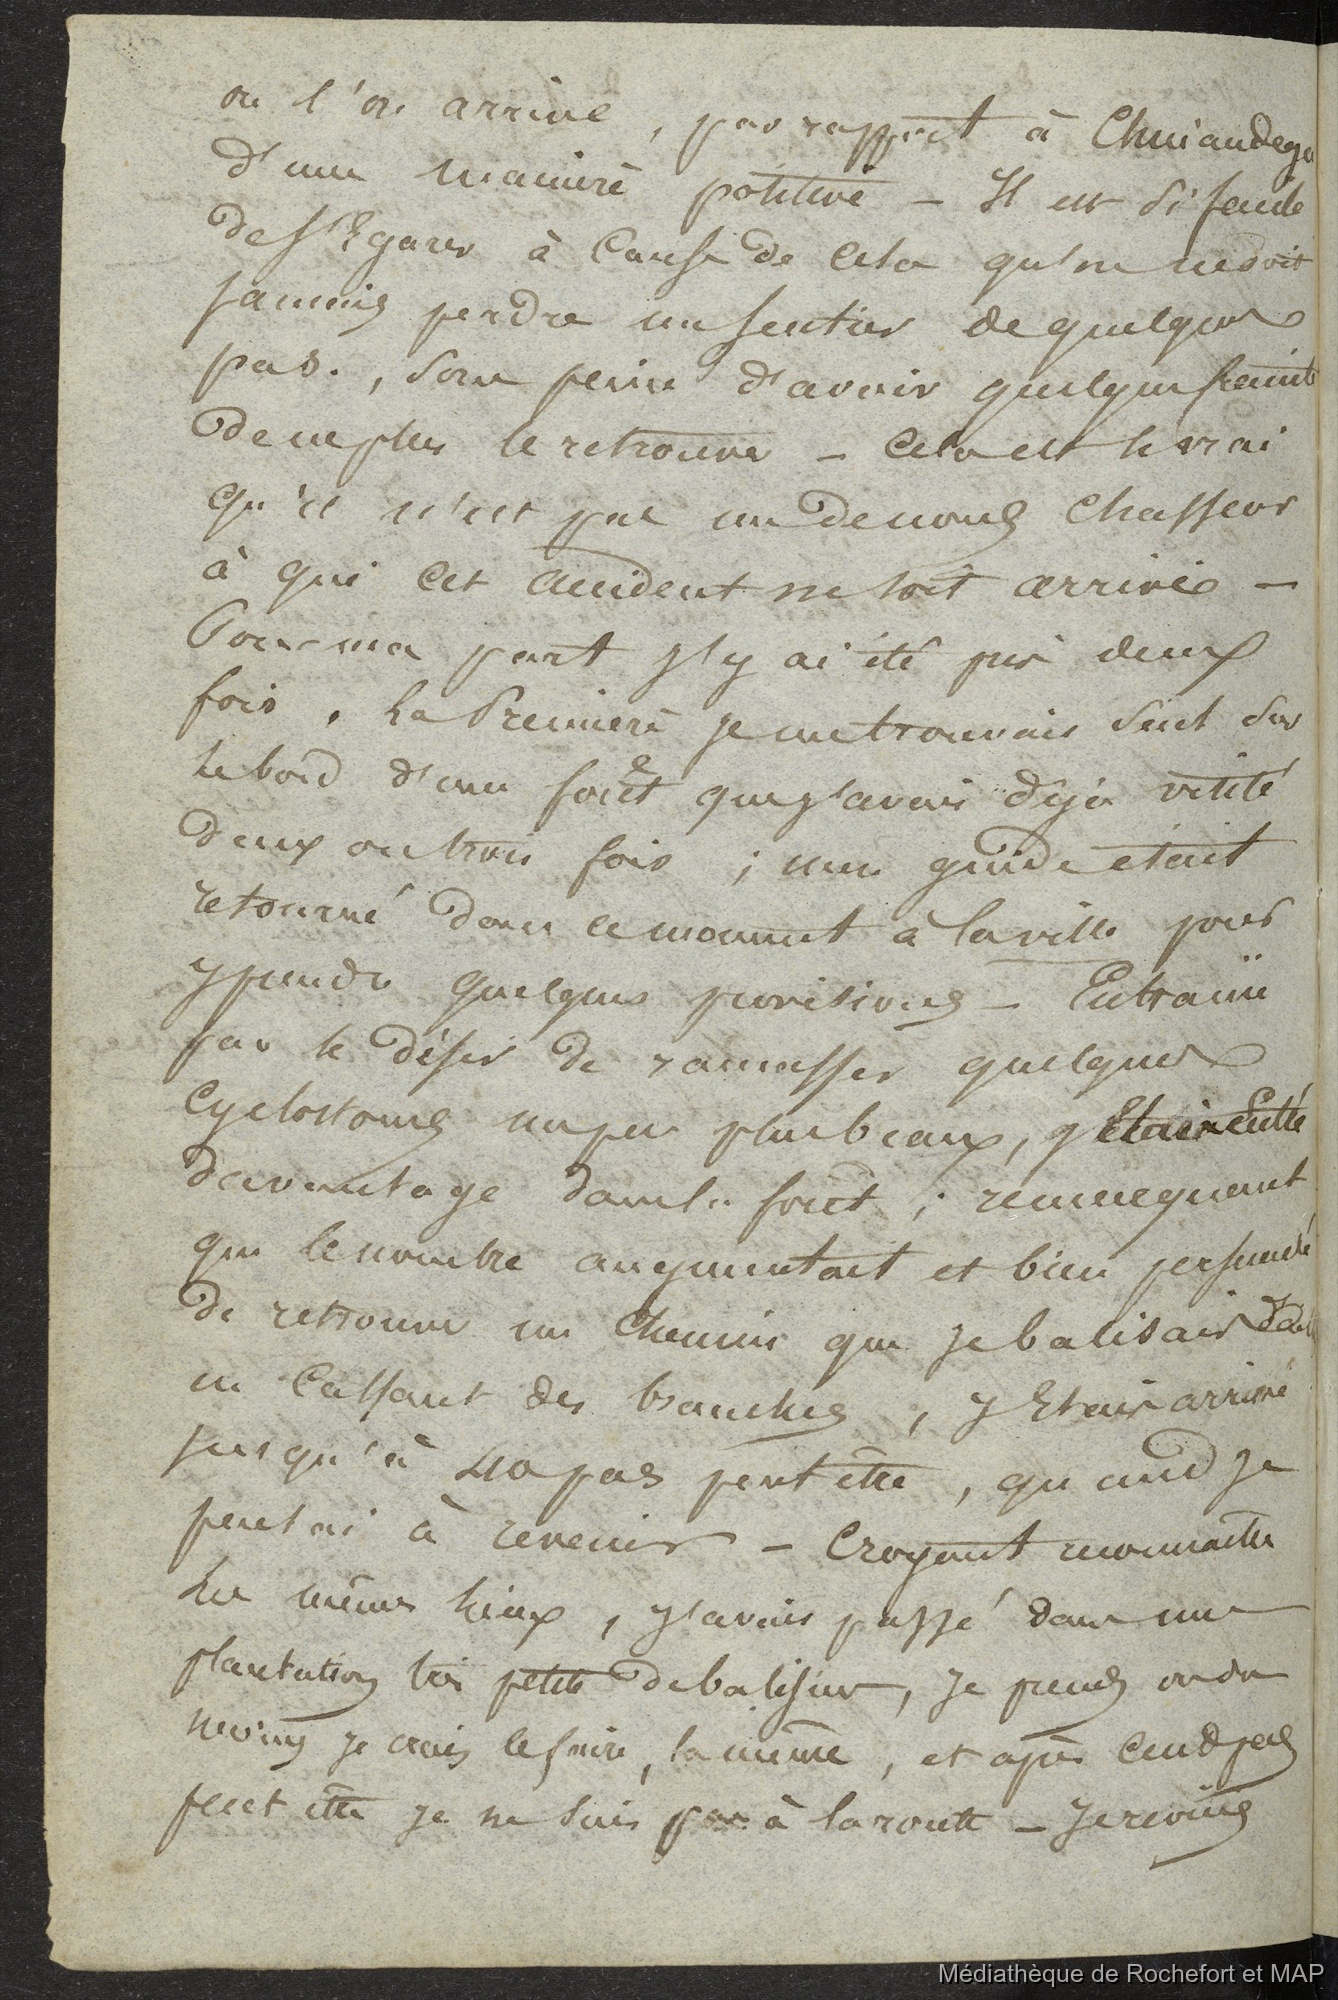 ou l'on arrive, par rapport à Chinandega
d'une manière positive – Il est si facile
de s'Egarer à Cause de cela qu'on ne doit
jamais perdre un sentier de quelques
pas., sous peine d'avoir quelque crainte
de ne plus le retrouver – Cela est si vrai
qu'il n'est pas un de nous Chasseurs
à qui cet accident ne soit arrivé –
Pour ma part j'y ai été pris deux
fois. La Première je me trouvais seul sur
le bord d'une forêt que j'avais déjà visité
deux ou trois fois ; mon guide était
retourné dans ce moment à la ville pour
y prendre quelques provisions – Entrainé
par le désir de ramasser quelques
Cyclostomes un peu plus beaux, j'Etais Entré
davantage dans la forêt ; remarquant
que le nombre augmentait et bien persuadé
de retrouver un Chemin que je balisais
en Cassant des branches, j'Etais arrivé
jusqu'à 40 pas peut être, quand je
pensai à revenir – Croyant reconnaitre
les mêmes lieux, j'avais passé dans une
plantation très petite de balisiers, je prends ou du
moins je crois le faire, la même, et après Cend pas
peut être je ne suis pas à la route – Je reviens
Médiathèque de Rochefort et MAP